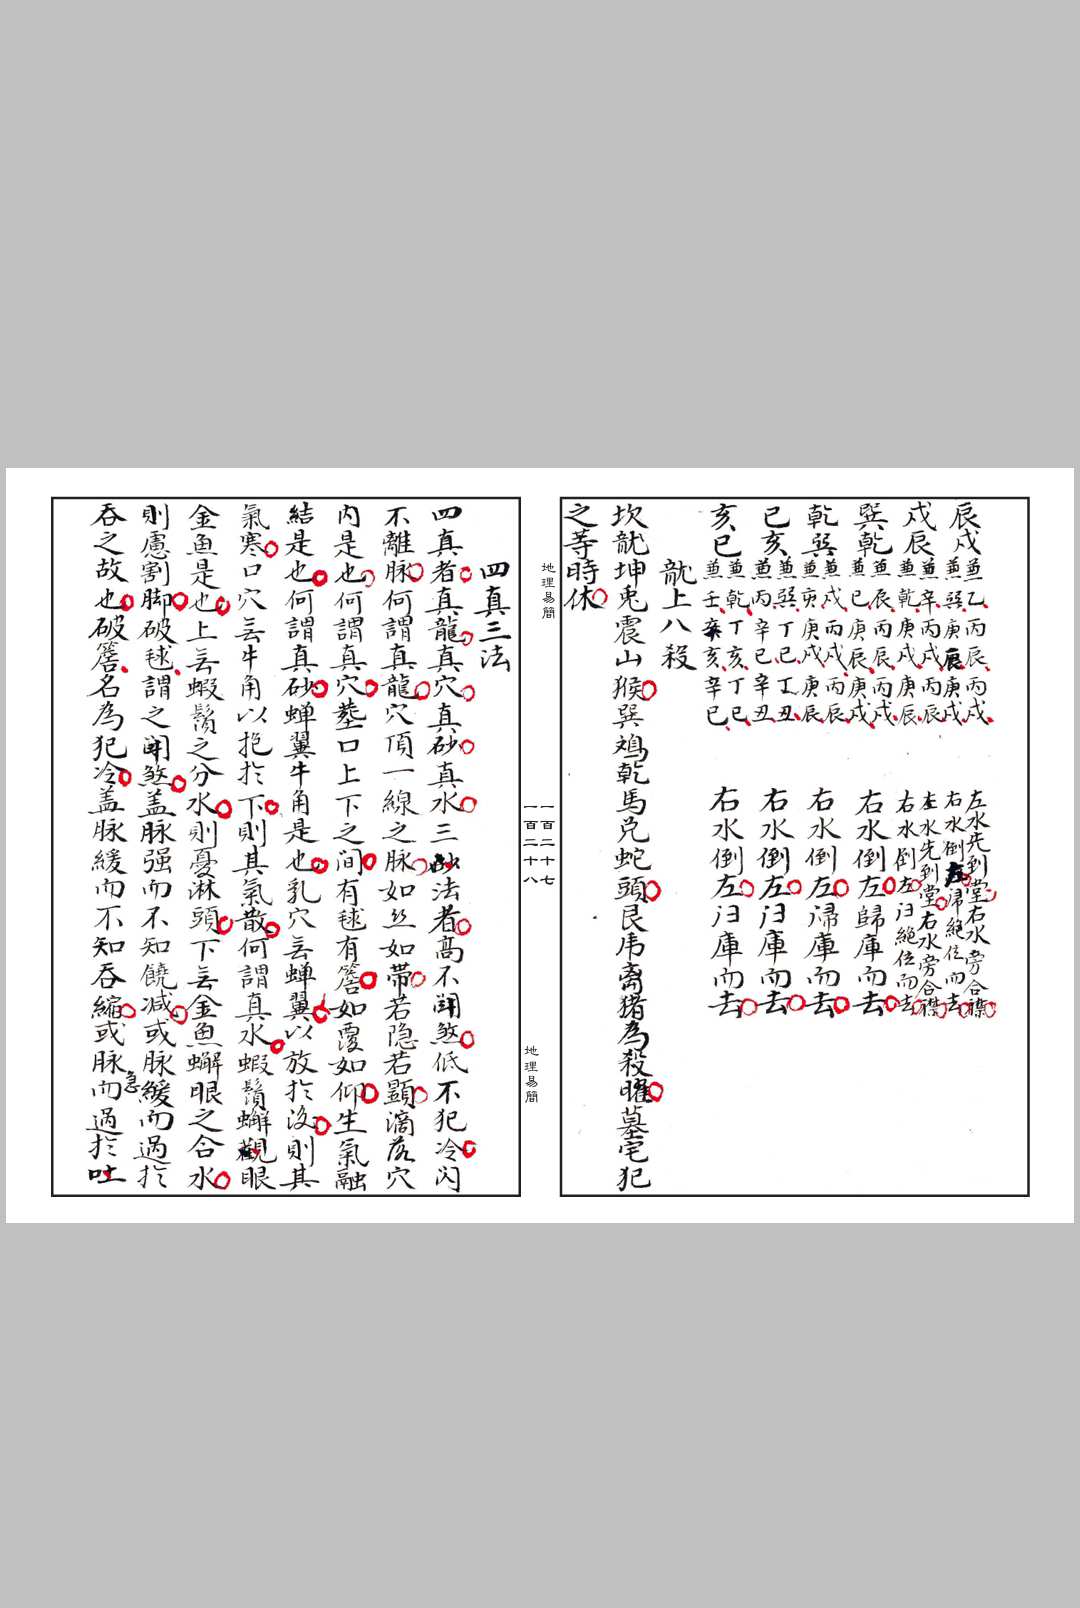 辰戌兼乙丙辰丙戌 左水先到堂右水旁合襟
兼巽庚辰庚戌 右水倒左㱕絕位而去
戌辰兼辛丙戌丙辰 左水先到堂右水旁合襟
兼乾庚戌庚辰 右水倒左㱕絕位而去
巽乾兼辰丙辰丙戌 右水倒左歸庫而去
兼巳庚辰庚戌
乾巽兼戌丙戌丙辰 右水倒左㱕庫而去
兼亥庚戌庚辰
巳亥兼巽丁巳丁丑 右水倒左㱕庫而去
兼丙辛巳辛丑
亥巳兼乾丁亥丁巳 右水倒左㱕庫而去
兼壬辛亥辛巳
龍上八殺
坎龍坤兎震山猴巽鳮乾馬兌蛇頭艮乕离猪為殺曜墓宅犯
之等時休
地理易簡
一百二十七
一百二十八
地理易簡
四真三法
四真者真龍真穴真砂真水三法者高不鬬煞低不犯冷闪
不離脉何謂真龍穴頂一線之脉如丝如带若隐若顕滴落穴
内是也何謂真穴塟口上下之间有毬有簷如覆如仰生氣融
結是也何謂真砂蝉翼牛角是也乳穴㒷蝉翼以放扵没則其
氣寒口穴㒷牛角以抱扵下則其氣散何謂真水蝦鬚蠏眼
金魚是也上㒷蝦鬚之分水則憂淋頭下㒷金魚蠏眼之合水
則慮割脚破毬謂之鬬煞盖脉强而不知饒减或脉緩而過扵
吞之故也破簷名為犯冷盖脉緩而不知吞縮或脉急而過扵吐